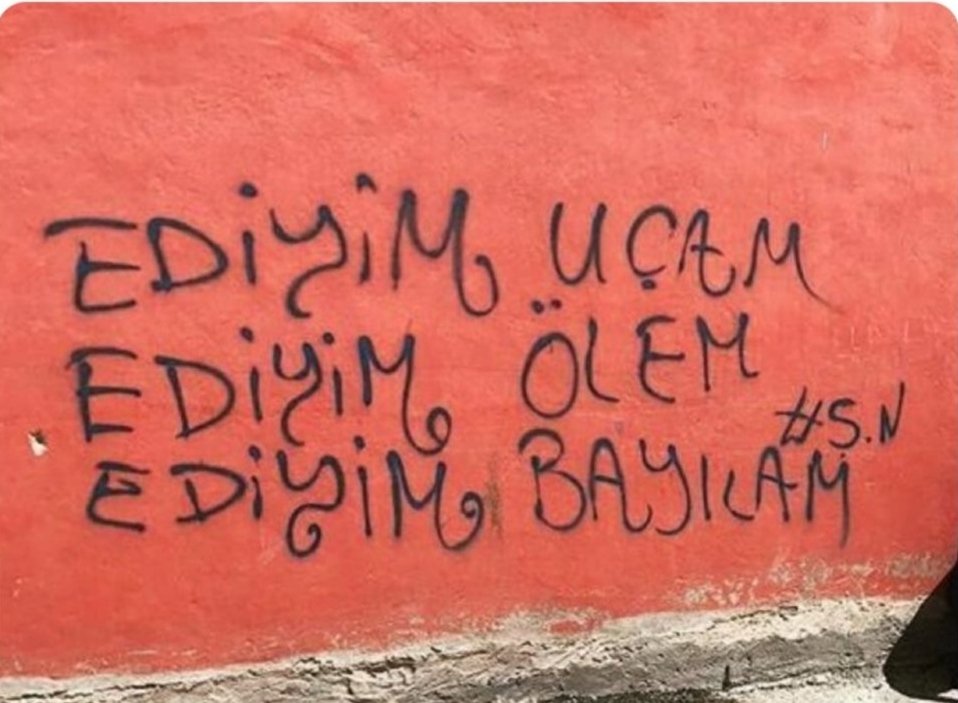 EDİYİM UÇAM
EDİYİM ÖLEM
#Ş.N
EDİYİM BAYILAM